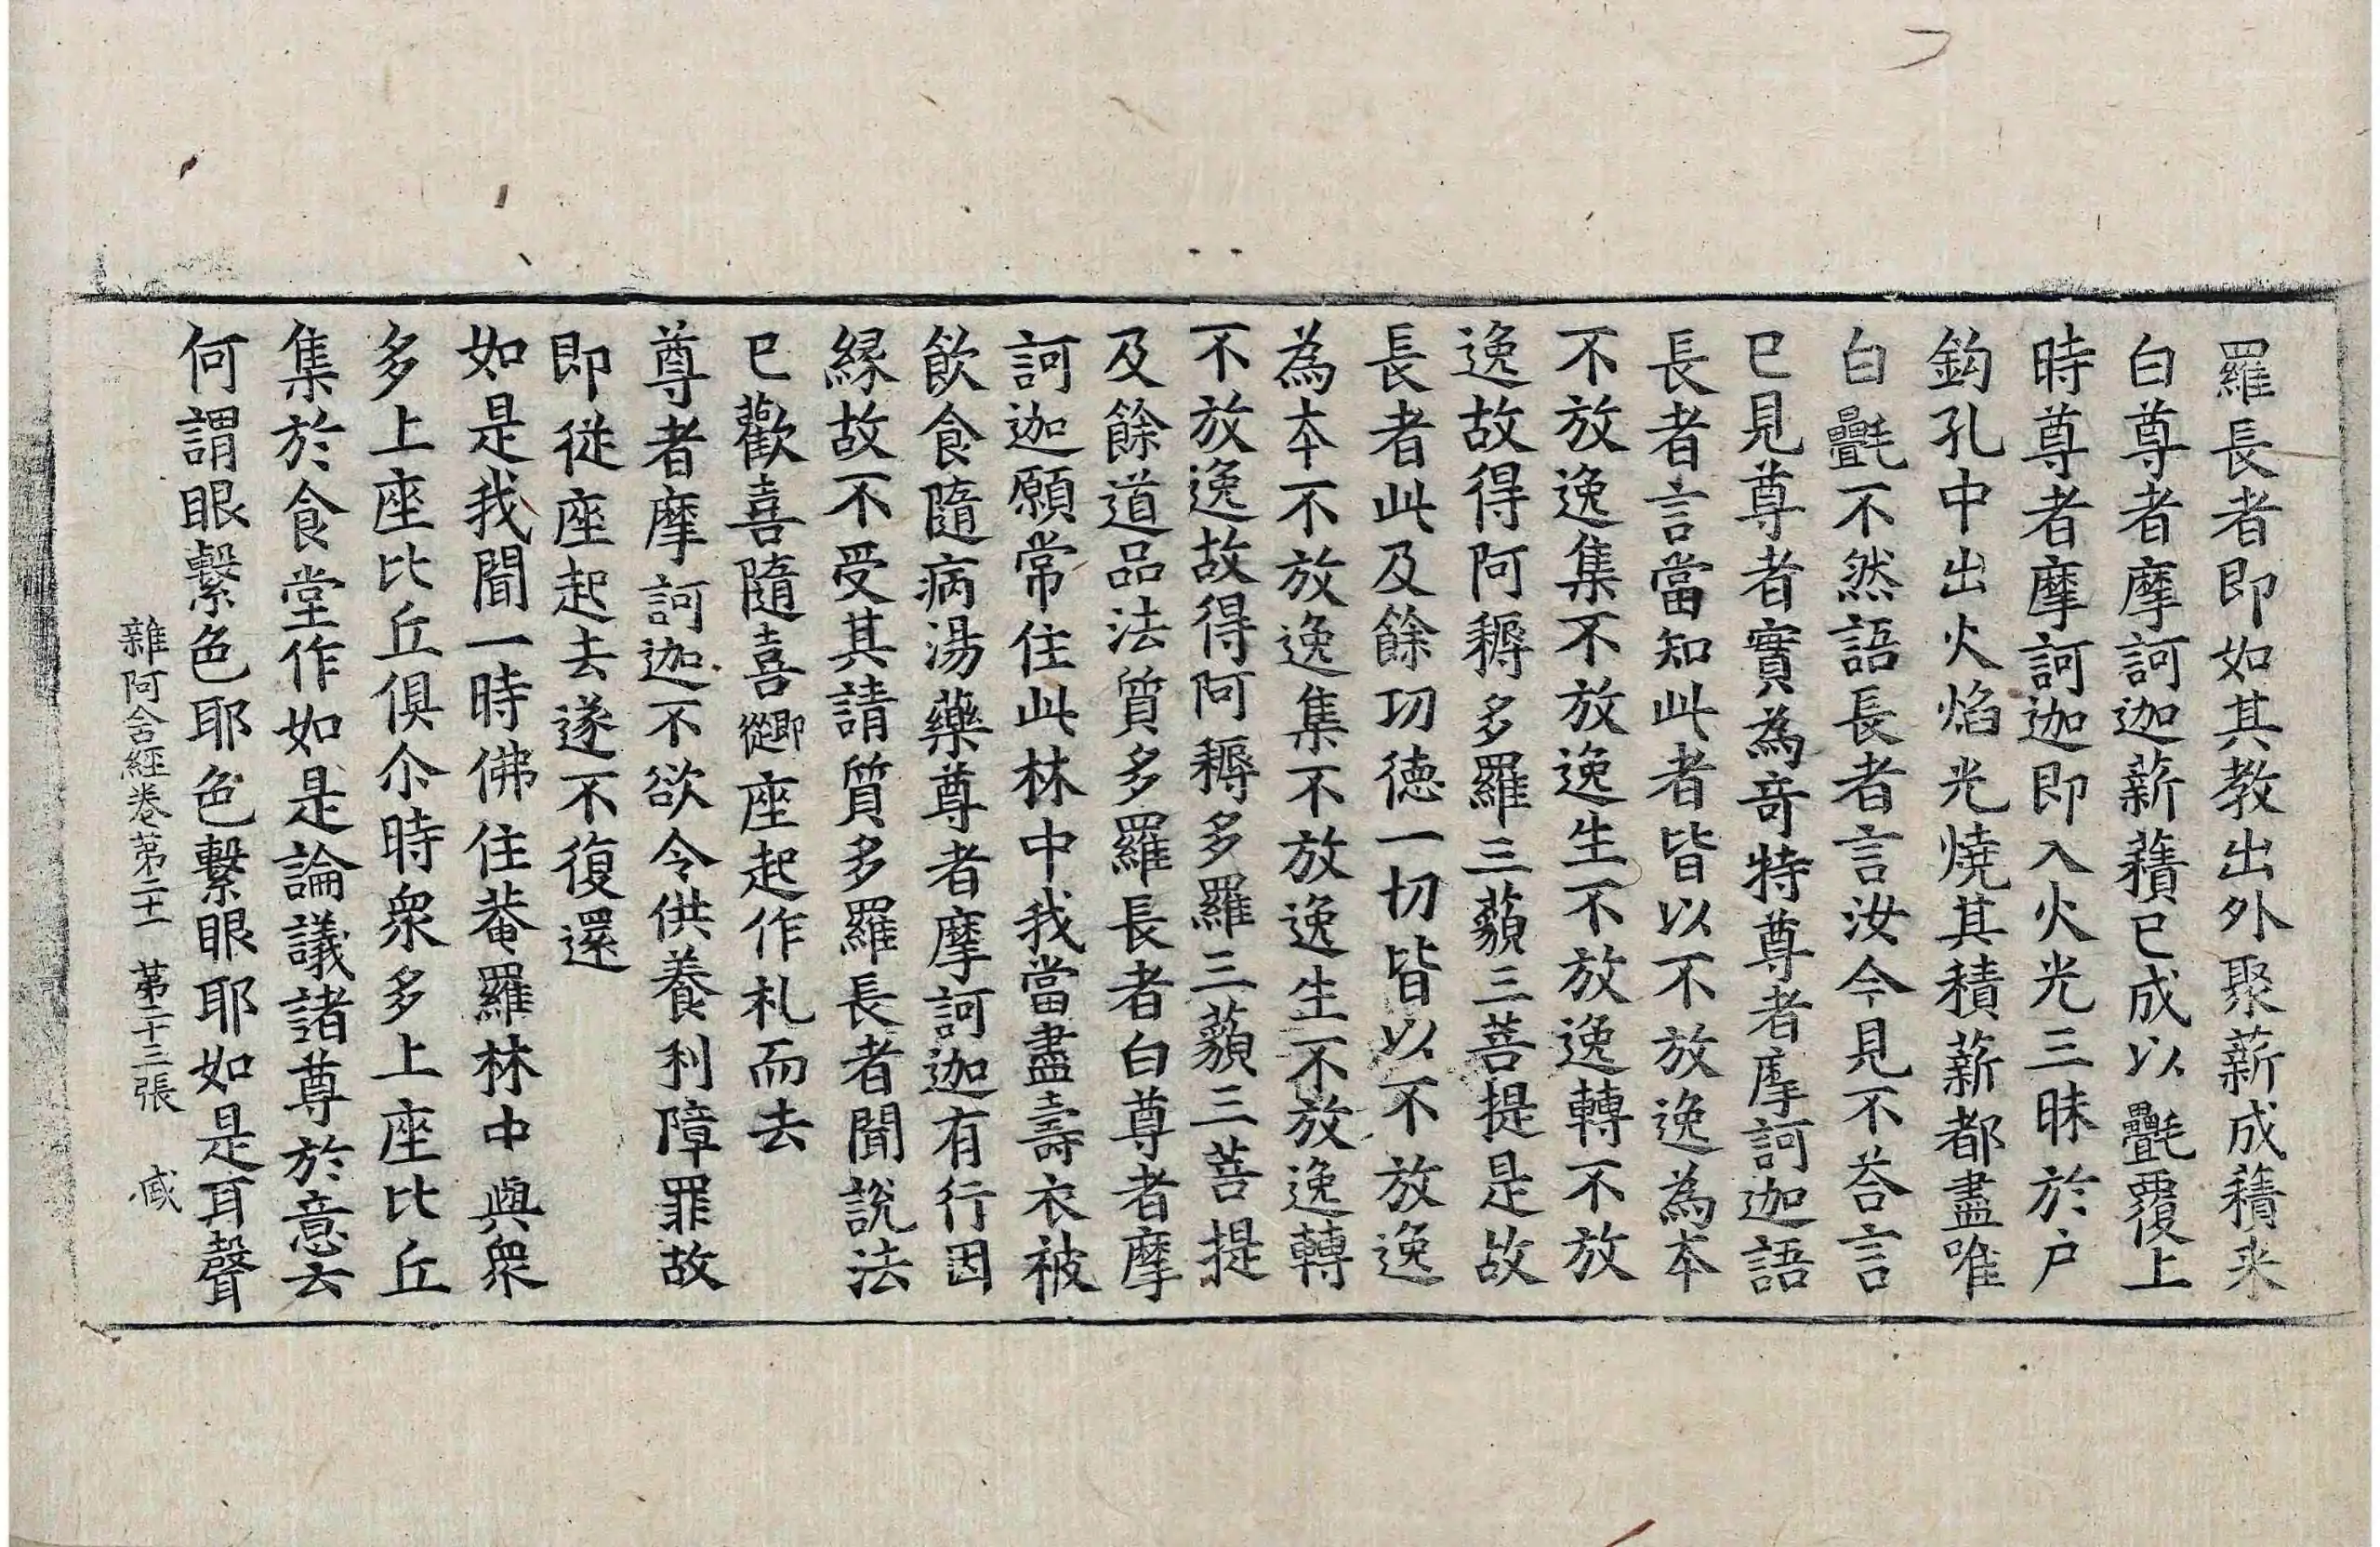 羅長者即如其教出外聚薪成𧂐来
白尊者摩訶迦薪𧂐已成以㲲覆上
時尊者摩訶迦即入火光三昧於户
鈎孔中出火焰光燒其積薪都盡唯
白㲲不然語長者言汝今見不荅言
已見尊者實為奇特尊者摩訶迦語
長者言當知此者皆以不放逸為本
不放逸集不放逸生不放逸轉不放
逸故得阿耨多羅三藐三菩提是故
長者此及餘功德一切皆以不放逸
為本不放逸集不放逸生不放逸轉
不放逸故得阿耨多羅三藐三菩提
及餘道品法質多羅長者白尊者摩
訶迦願常住此林中我當盡壽衣被
飲食隨病湯藥尊者摩訶迦有行因
緣故不受其請質多羅長者聞說法
已歡喜隨喜即從座起作礼而去
尊者摩訶迦不欲令供養利障罪故
即從座起去遂不復還
如是我聞一時佛住菴羅林中與衆
多上座比丘俱尒時衆多上座比丘
集於食堂作如是論議諸尊於意云
何謂眼繫色耶色繫眼耶如是耳聲
雜阿含經卷苐二十一　苐二十三張　咸